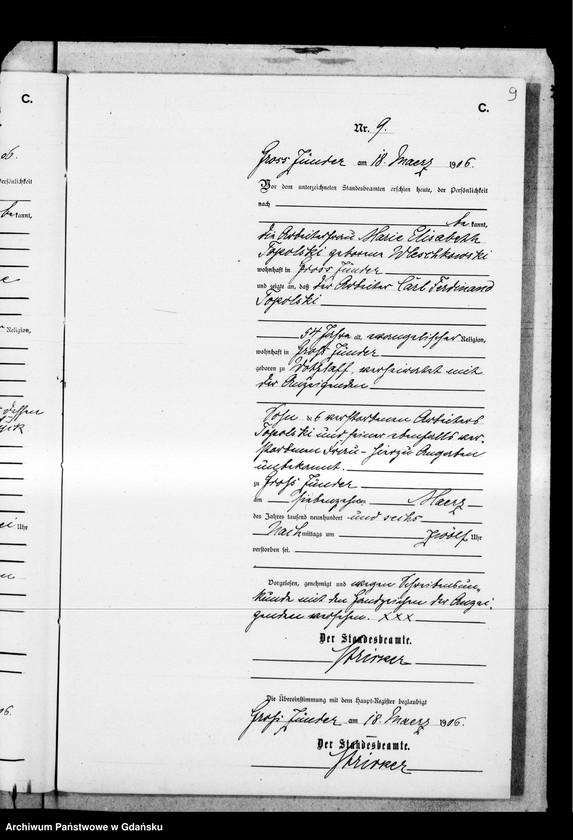 C.
9
C.
Nr. 9.
Gross Zünder am 18. Maerz 1906.
Vor dem unterzeichneten Standesbeamten erschien heute, der Persönlichkeit
nach
be kannt,
die Arbeiterfrau Marie Elisabeth
Topolski geborene Wleschkowski
wohnhaft in Gross Zünder
und zeigte an, daß der Arbeiter Carl Ferdinand
Topolski
54 Jahre alt, evangelischer Religion,
wohnhaft in Groß Zünder
geboren zu Wotzlaff, verheiratet mit
der Anzeigenden
Sohn des verstorbenen Arbeiters
Topolski und seiner ebenfalls ver-
storbenen Frau - hierzu Angaben
unbekannt.
zu Groß Zünder
am siebenzehnten Maerz
des Jahres tausend neunhundert und sechs
Nachmittags um zwölf Uhr
verstorben sei.
Vorgelesen, genehmigt und wegen Schreibensun-
kunde mit den Handzeichen der Anzei-
genden versehen. XXX
Der Standesbeamte.
Die Übereinstimmung mit dem Haupt-Register beglaubigt
Groß Zünder am 18. Maerz 1906.
Der Standesbeamte.
Archiwum Państwowe w Gdańsku